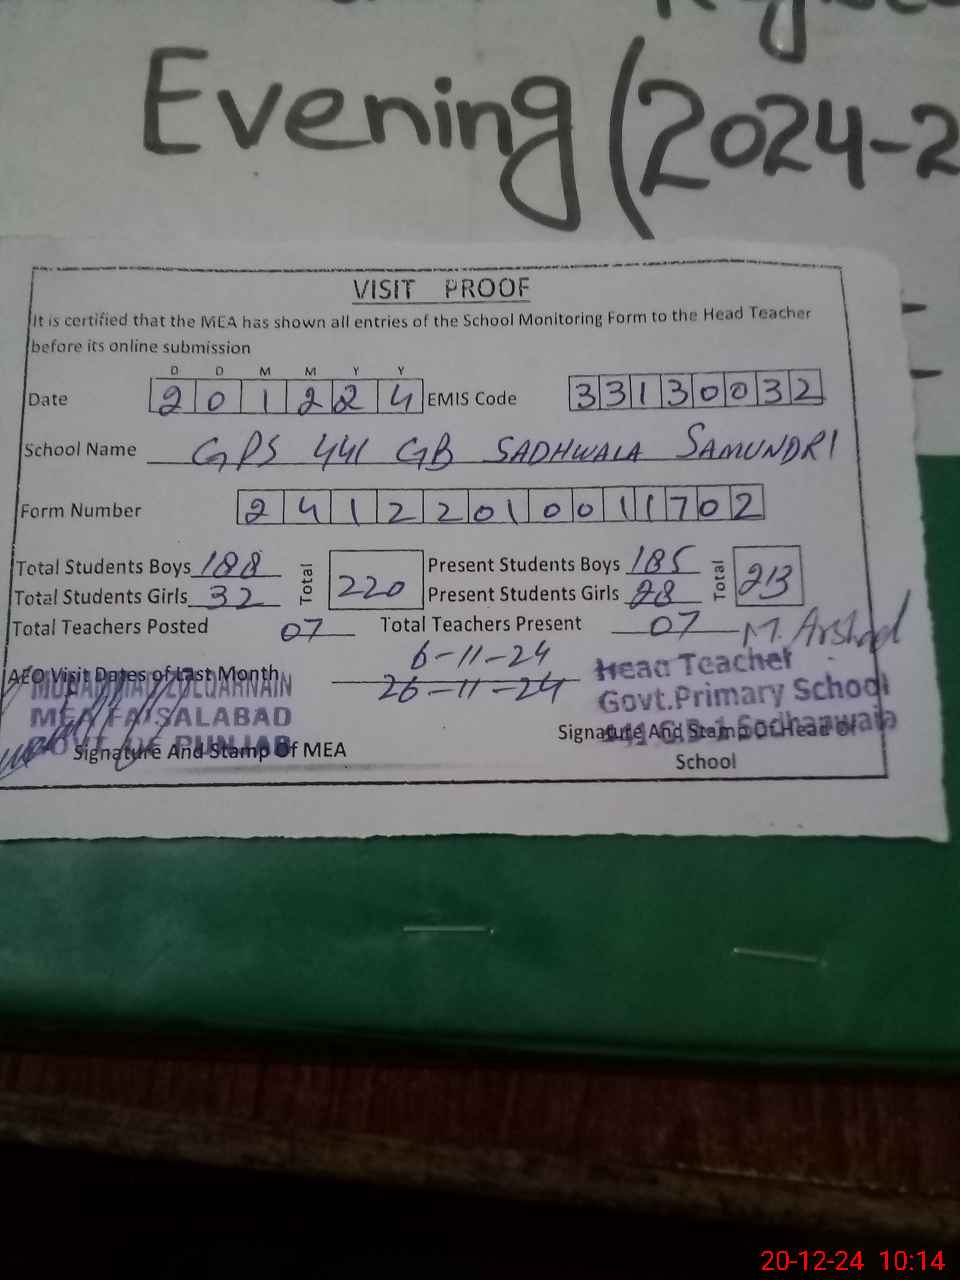 Evening (2024-2
VISIT PROOF
It is certified that the MEA has shown all entries of the School Monitoring Form to the Head Teacher
before its online submission
D D M M Y Y
Date 2 0 1 2 2 4 EMIS Code 3 3 1 3 0 0 3 2
School Name GPS 441 GB SADHWALA SAMUNDRI
Form Number 2 4 1 2 2 0 1 0 0 1 1 7 0 2
Total Students Boys 188 Total 220 Present Students Boys 185 Total 213
Total Students Girls 32 Present Students Girls 28
Total Teachers Posted 07 Total Teachers Present 07 M. Arshad
AEO Visit Dates of Last Month 6-11-24
26-11-24
MUHAMMAD ZULQARNAIN
MEA FAISALABAD
GOVT OF PUNJAB
Signature And Stamp Of MEA
Head Teacher
Govt.Primary School
Signature And Stamp Of Head of
School
20-12-24 10:14